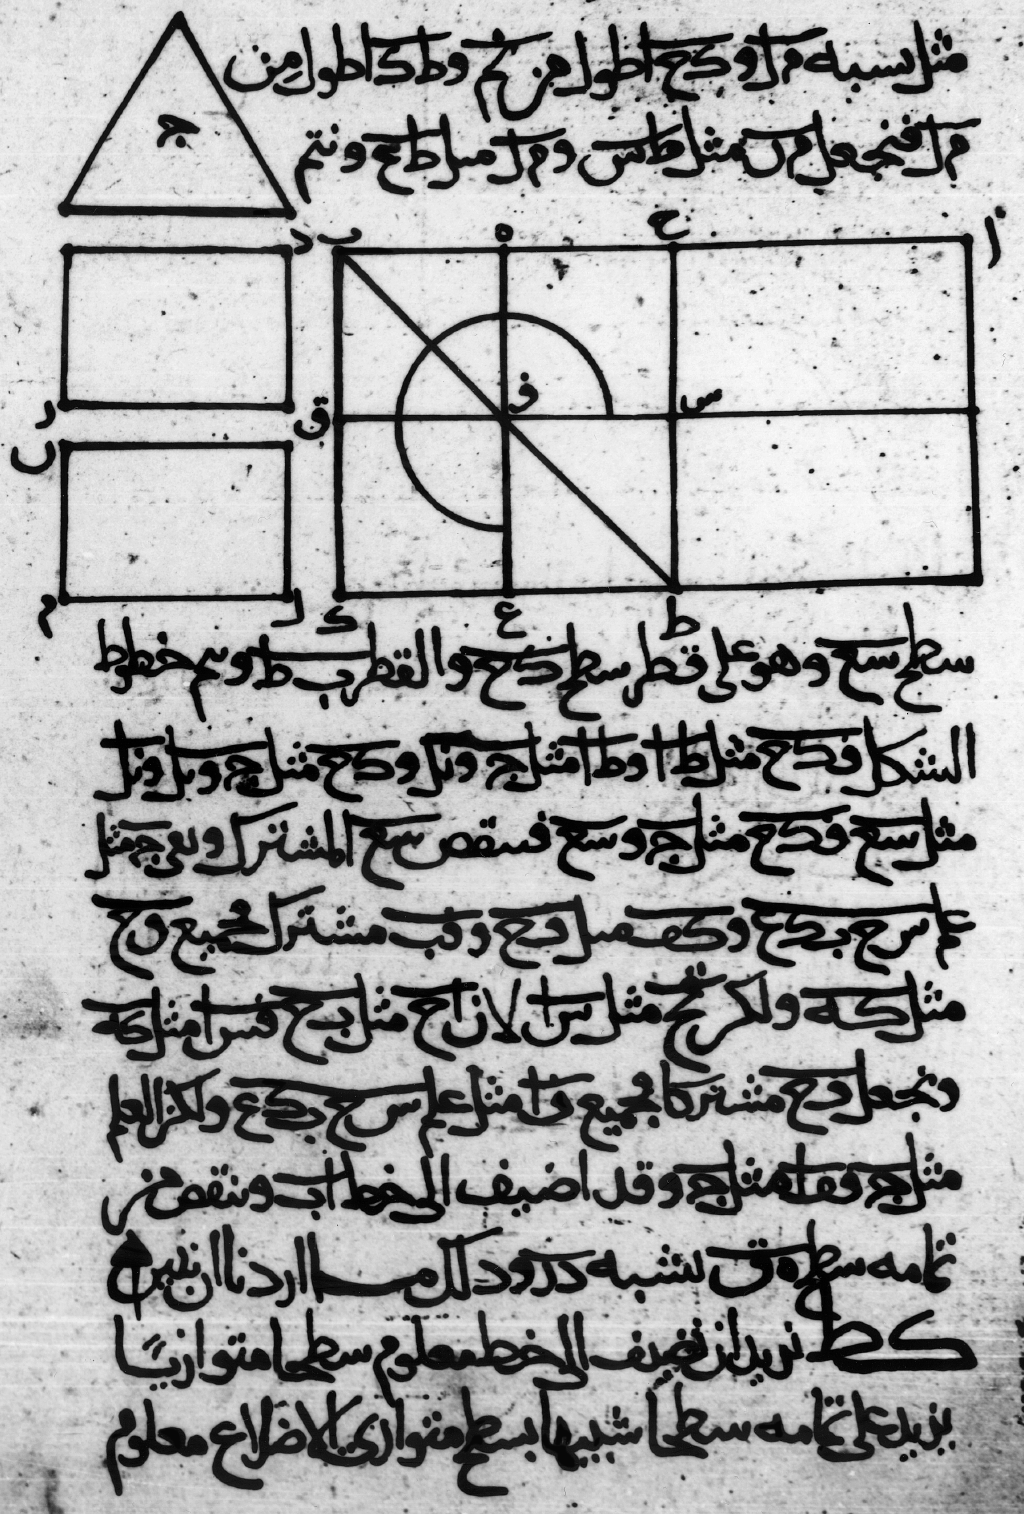 مثل يسبه مل وكح اطول من نم وطك اطول من
مل فنجعل من مثل طس ومل مثل طع ونتم
ج
ا
ح
ه
ب
د
س
ف
ق
ر
ن
ط
ع
ك
ل
م
سطح سع وهو على قطر سطح كح والقطر ب ط ونتم خطوط
الشكل فكح مثل ج ونل وكح مثل ج ونل ونل
مثل سع فكح مثل ج وسع فننقص سع المشترك وبقي ج مثل
علم س ح ب ك ع وكف مثل فح وفب مشترك فجميع
مثل كه ولكن مثل س ا لان اح مثل بح فس ا مثل كه
ونجعل فح مشتركا فجميع فا مثل علم س ح ب ك ع ولكن العلم
مثل ج ففا مثل ج وقد اضيف الى خط اب ونقص من
تمامه سطح ه ق يشبه در وذلك ما اردنا ان نبين
كط نريد ان نضيف الى خط معلوم سطحا متوازيا
يزيد على تمامه سطحا شبيها بسطح متوازي الاضلاع معلوم